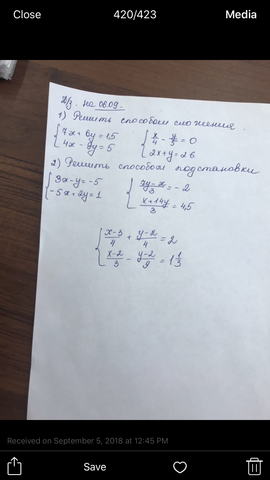 Close 420/423 Media
Д/з. на 06.09.
1) Решить способом сложения.
{7x + 6y = 15 {x/4 - y/3 = 0
{4x - 9y = 5 {2x + y = 26
2) Решить способом подстановки
{3x - y = -5 = -2
{-5x + 2y = 1 {x + 14y/3 = 4,5
{x-3/4 + = 2
{x-2/3 - y-2/9 = 1 1/3
Received on September 5, 2018 at 12:45 PM
Save